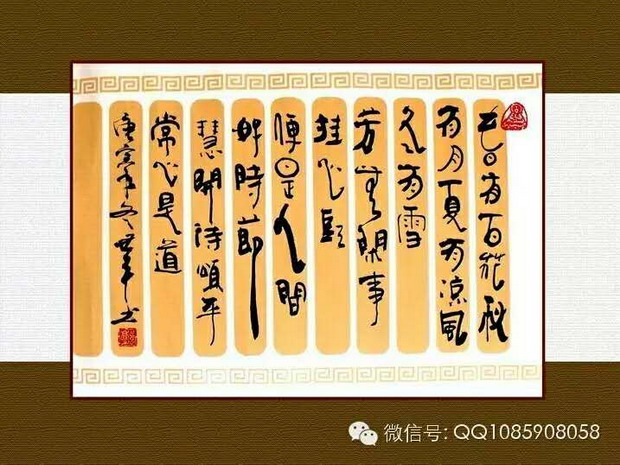 春有百花秋
有月夏有凉風
冬有雪
若無閑事
挂心頭
便是人間
好時節
慧開詩頌平
常心是道
庚寅年冬
微信号: QQ1085908058